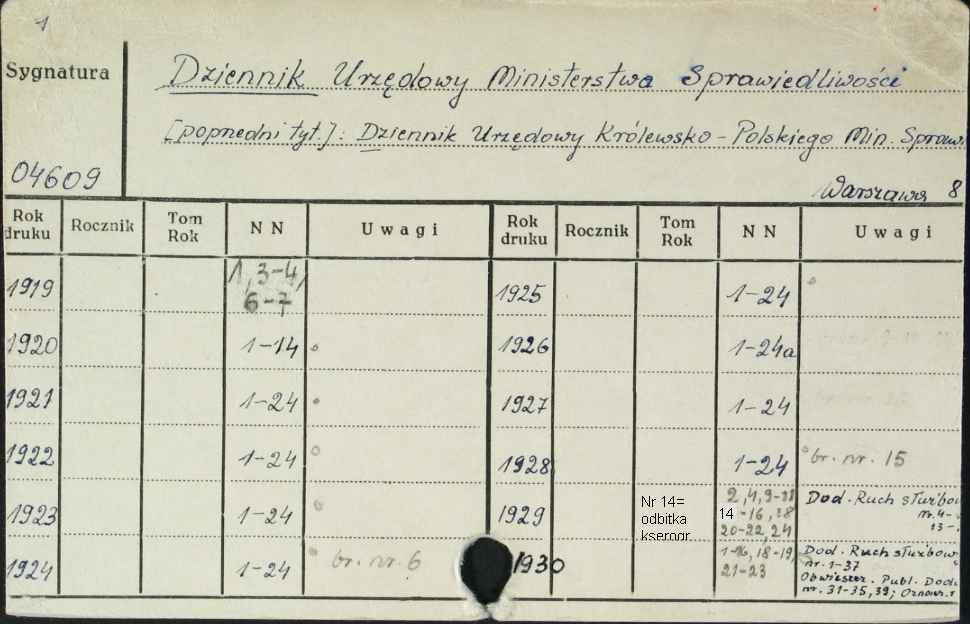 1
Sygnatura
Dziennik Urzędowy Ministerstwa Sprawiedliwości
[poprzedni tyt.]: Dziennik Urzędowy Królewsko-Polskiego Min. Spraw.
04609
Warszawa 8
Rok druku Rocznik Tom Rok NN Uwagi Rok druku Rocznik Tom Rok NN Uwagi
1919 1, 3-4, 6-7 1925 1-24
1920 1-14 1926 1-24a
1921 1-24 1927 1-24
1922 1-24 1928 1-24 br. nr. 15
1923 1-24 1929 Nr 14= odbitka kserogr. 2, 4, 9-11 14-16, 18 20-22, 24 Dod. Ruch służbow nr. 4- 13-
1924 1-24 br. nr. 6 1930 1-16, 18-19, 21-23 Dod. Ruch służbow nr. 1-37 Obwieszcz. Publ. Dod. nr. 31-35, 39;